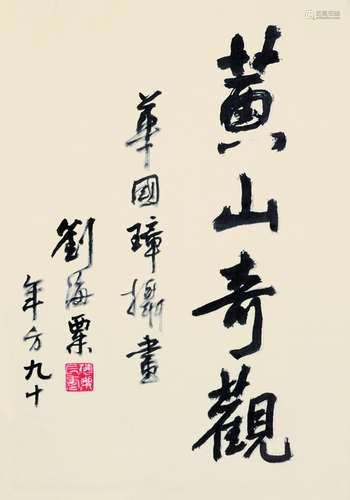 黄山奇觀
華國璋攝畫
劉海粟
年方九十